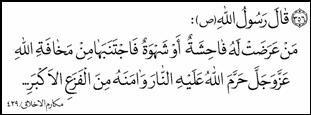 ٣٥٦ قَالَ رَسُولُ اللهِ (ص):
مَنْ عَرَضَتْ لَهُ فَاحِشَةٌ أَوْ شَهْوَةٌ فَاجْتَنَبَهَا مِنْ مَخَافَةِ اللهِ
عَزَّوَجَلَّ حَرَّمَ اللهُ عَلَيْهِ النَّارَ وَامَنَهُ مِنَ الْفَزَعِ الاَكْبَرِ...
مكارم الاخلاق ٤٢٩